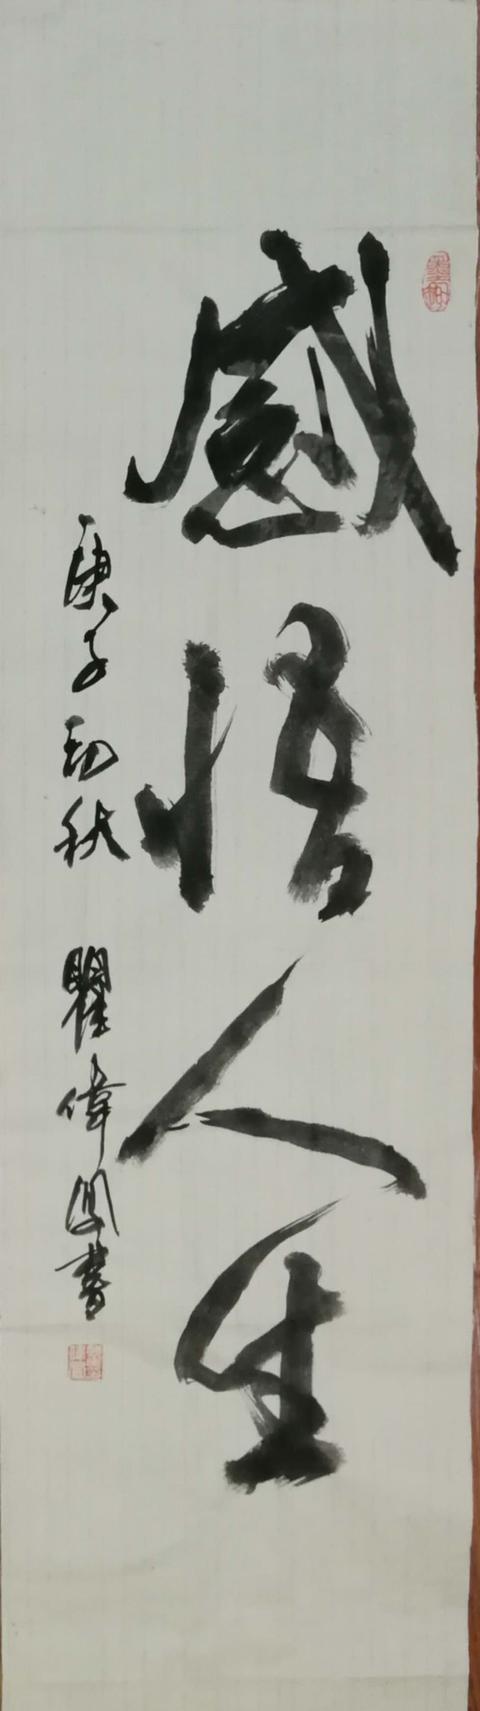 感悟人生
庚子初秋 瞿偉国書